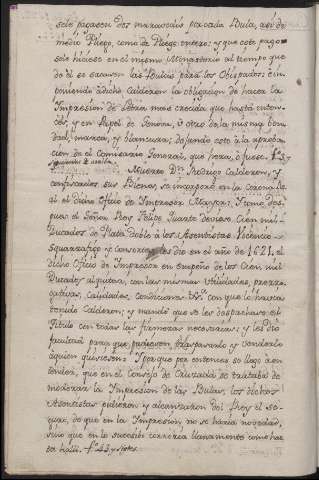 sele pagasen dos maravedis por cada Bula, asi de
medio Pliego, como de Pliego entero: y que este pago
sele hiciese en el mismo Monasterio al tiempo que
de él se sacaren las Bulas para los Obispados: im-
poniendo á dicho Calderon la obligacion de hacer la
Impresion de Letra mas crecida que hasta enton-
ces, y en Papel de Genova, ú otro de la misma bon-
dad, marca, y blancura; dejando esto á la aproba-
cion de el Comisario General, que era, ó fuese. fº 37
Muerto Dn. Rodrigo Calderon, y
confiscados sus Bienes, se incorporó en la Corona R.
el dicho Oficio de Impresor Mayor. Y como des-
pues el Señor Rey Felipe Quarto deviese Cien mil
Ducados de Plata doble á los Asentistas Vicencio
Squarzafigo y consortes, les dio en el año de 1621, el
dicho Oficio de Impresor en empeño de los Cien mil
Ducados al quitar, con las mismas Utilidades, prerro-
gativas, Calidades, condiciones &ª. con que lo havia
tenido Calderon; y mandó que se les despachase el
Titulo con todas las firmezas necesarias; y les dio
facultad para que pudiesen traspasarlo y venderlo
á quien quisiesen. Y porque por entonces se llegó á en-
tender, que en el Consejo de Cruzada se trataba de
moderar la Impresion de las Bulas, los dichos
Asentistas pidieron y alcanzaron del Rey el se-
guro, de que en la Impresion no se haria novedad,
sino que en lo sucesibo correria llanamente como has-
ta halli. fº 43. y sigtes.